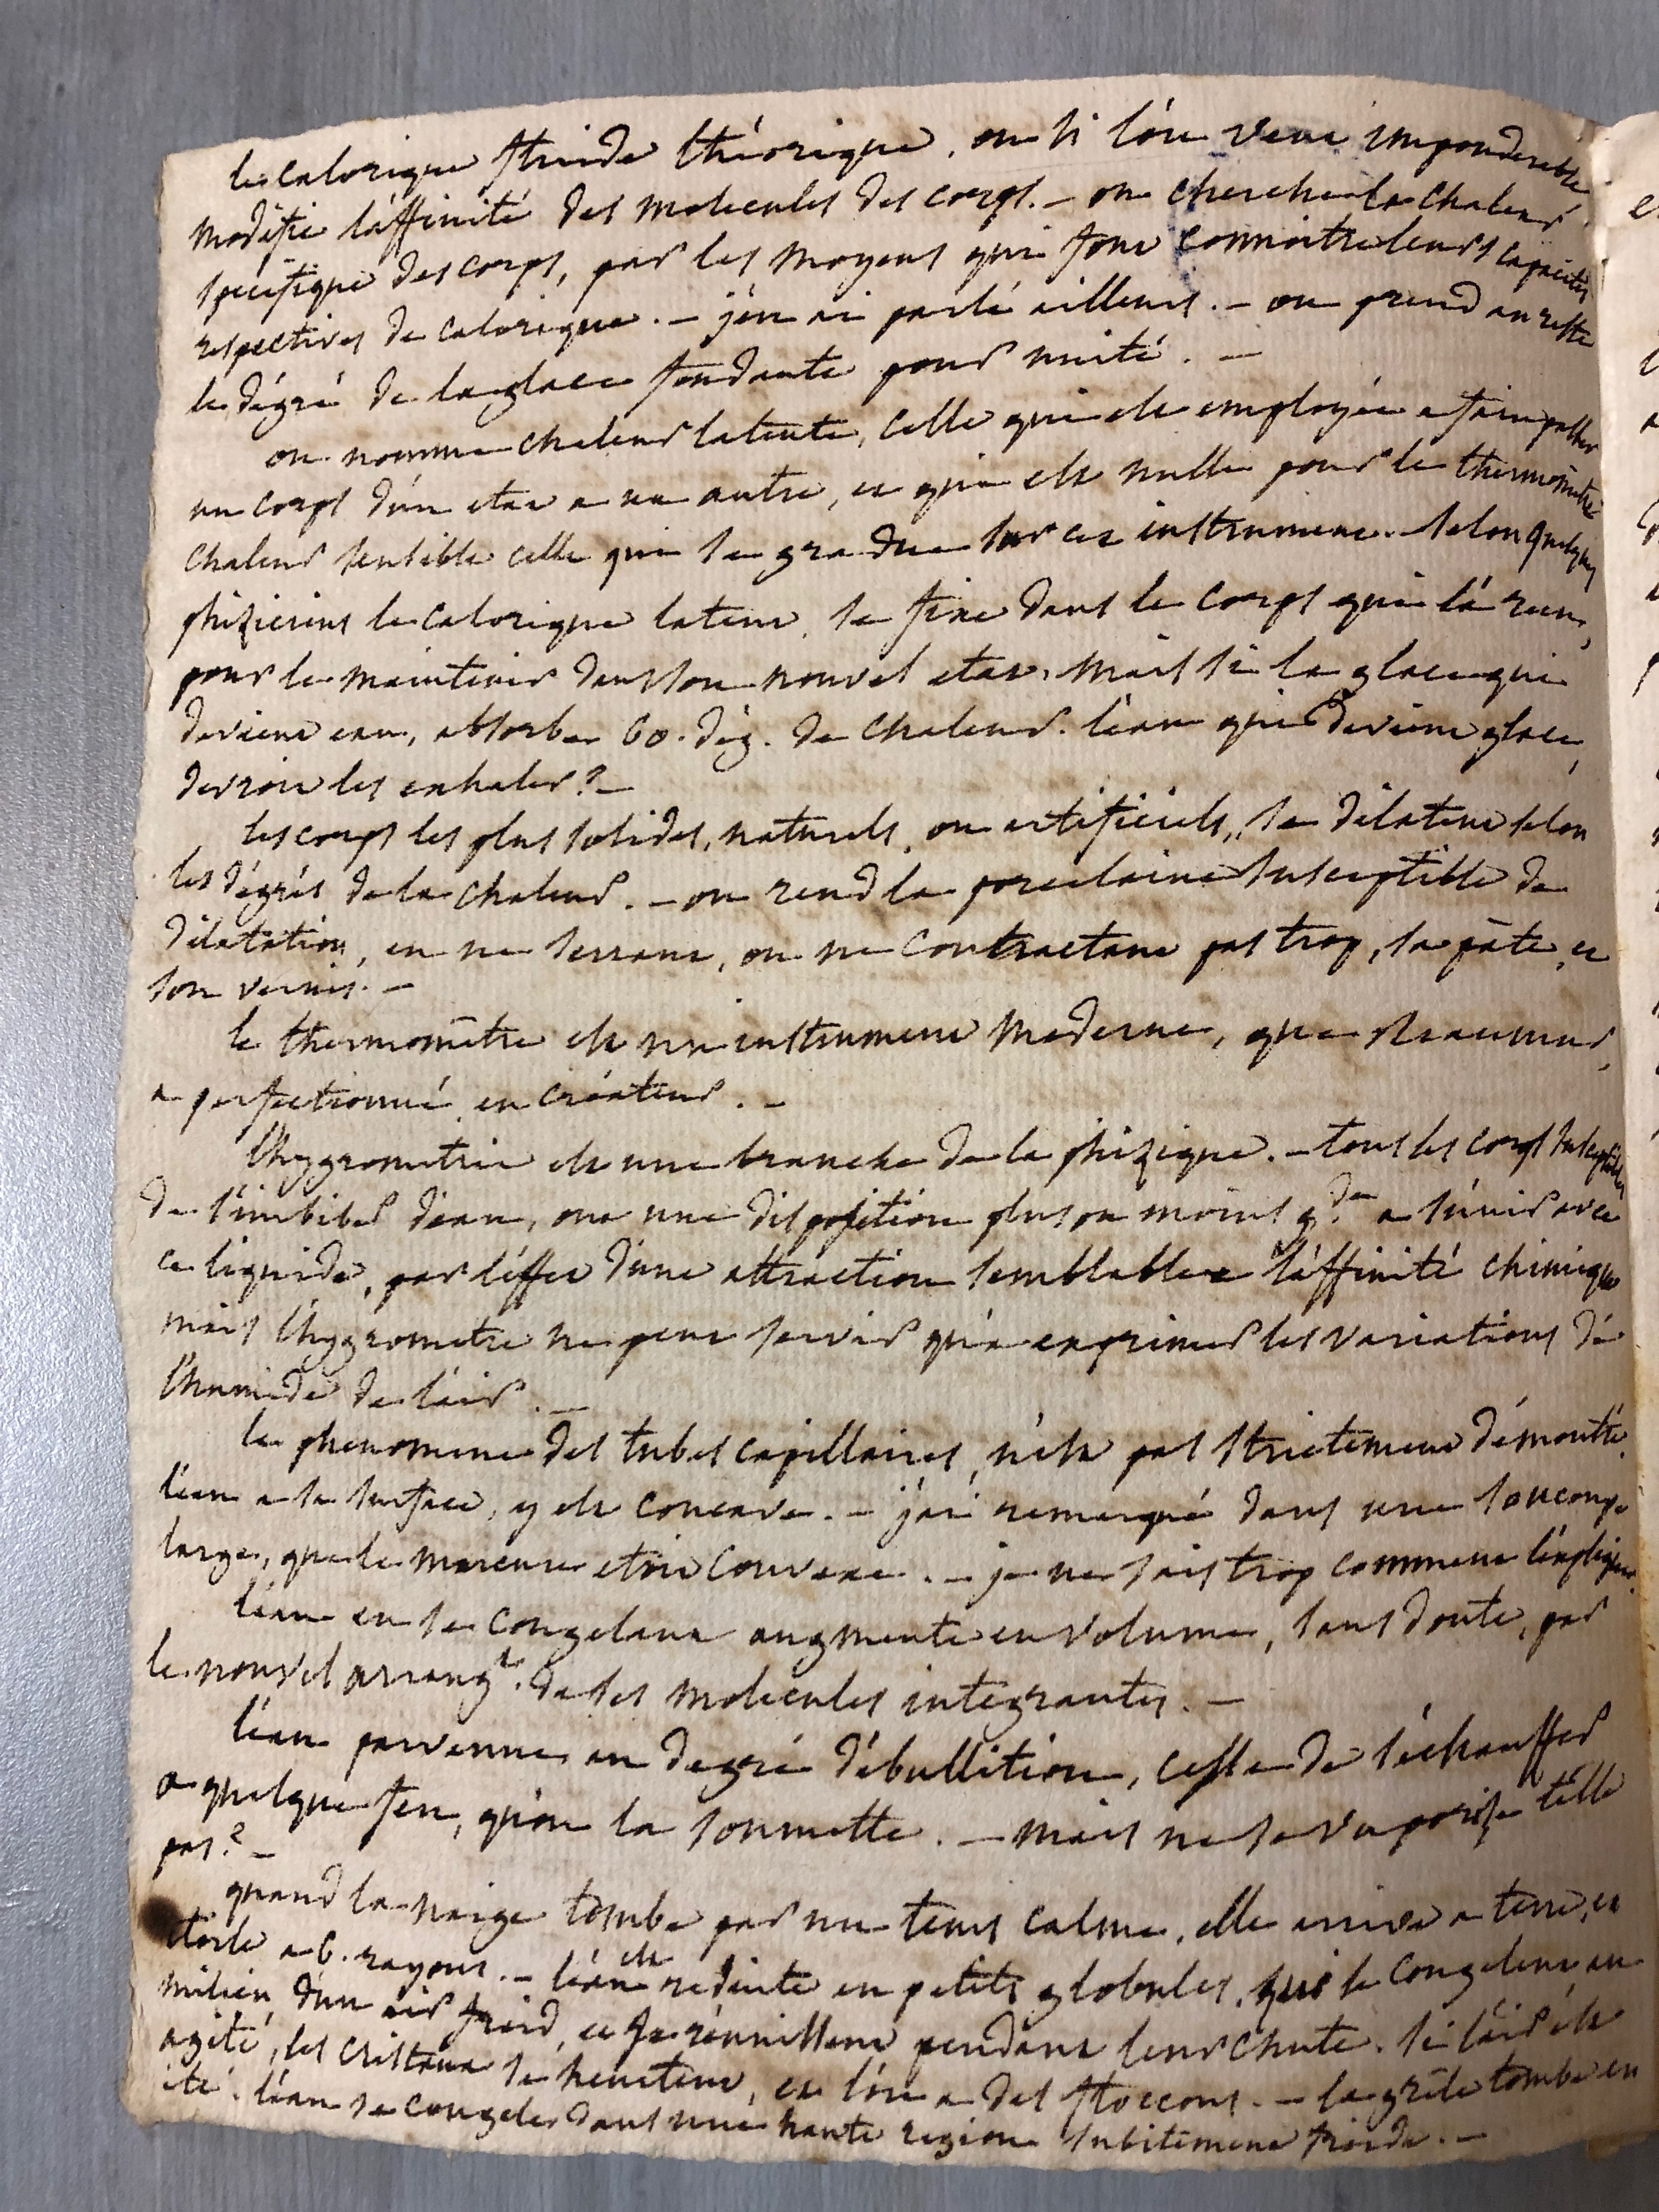 le calorique fluide théorique, ou si l'on veut imponderable
modifie l'affinité des molecules des corps. – on cherche la chaleur
specifique des corps, par les moyens qui font connoitre leurs capacités
respectives de calorique. – j'en ai parlé ailleurs. – on prend au reste
le dégré de la glace fondante pour unité. –
on nomme chaleur latente, celle qui est employée a faire passer
un corps d'un etat a un autre, et qui est nulle pour le thermométre
chaleur sensible celle qui se gradue sur cet instrument. selon quelques
phiziciens le calorique latent, se fixe dans le corps qui l'a recu,
pour le maintenir dans son nouvel etat, mais si la glace qui
devient eau, absorbe 60. dég. de chaleur. l'eau qui devient glace,
devroit les exhaler? –
les corps les plus solides, naturels, ou artificiels, se dilatent selon
les dégrés de la chaleur. – on rend la porcelaine susceptible de
dilatation, en ne serrant, ou ne contractant pas trop, sa pâte, et
son vernis. –
le thermométre est un instrument moderne, que Reaumur,
a perfectionné en créateur. –
l'hygrometrie est une branche de la phizique. – tous les corps susceptibles
de s'imbiber d'eau, ont une disposition plus ou moins gde. a s'unir avec
ce liquide, par l'effet d'une attraction semblable a l'affinité chimique
mais l'hygrometre ne peut servir qu'a exprimer les variations dé
l'humide de l'air. –
le phenomene des tubes capillaires, n'est pas strictement démontré.
l'eau a sa surface, y est concave. – j'ai remarqué dans une soucoupe
large, que le mercure etoit convexe. – je ne sais trop comment l'expliquer.
l'eau en se congelant augmente en volume, sans doute, par
le nouvel arrangt. de ses molecules integrantes. –
l'eau parvenue au degré d'ébullition, cesse de s'échauffer
a quelque feu, qu'on la soumette. – mais ne se vaporise t'elle
pas? –
quand la neige tombe par un tems calme, elle arrive a terre, en
étoile a 6. rayons. – l'eau est reduite en petits globules, qui se congelent au
milieu d'un air froid, et se réunissent pendant leur chute. si l'air est
agité, les cristaux se heurtent, et l'on a des floccons. – la grêle tombe en
été. l'eau se congele dans une haute region subitement froide. –